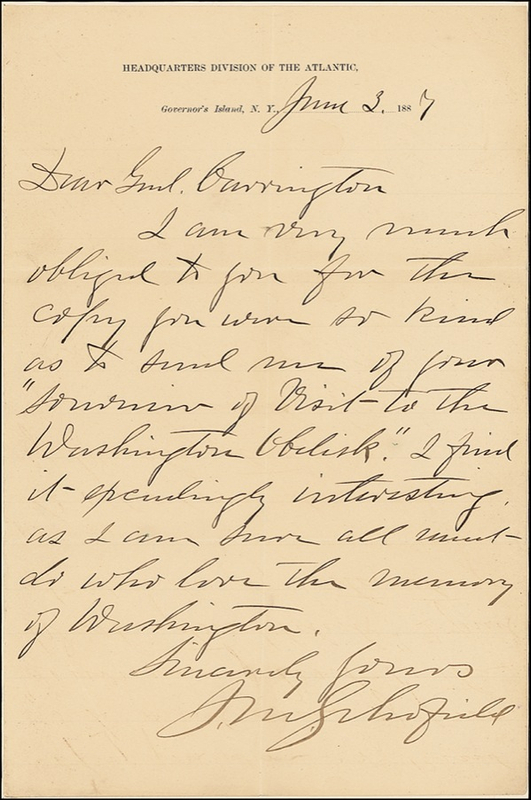 HEADQUARTERS DIVISION OF THE ATLANTIC,
Governor's Island, N. Y., June 3. 1887
Dear Genl. Carrington
I am very much
obliged to you for the
copy you were so kind
as to send me of your
"Souvenir of Visit to the
Washington Obelisk." I find
it exceedingly interesting,
as I am sure all must
do who love the memory
of Washington.
Sincerely yours
J. M. Schofield